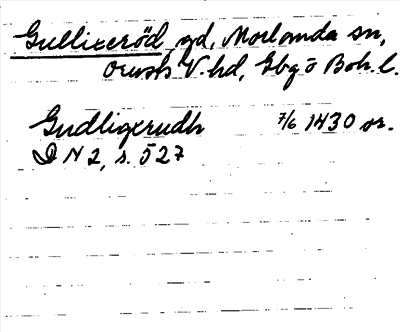 Gullixeröd, gd, Morlanda sn,
Orusts V. hd, Gbg o Boh. l.
Gudligxrudh 7/6 1430 or.
DN 2, s. 527